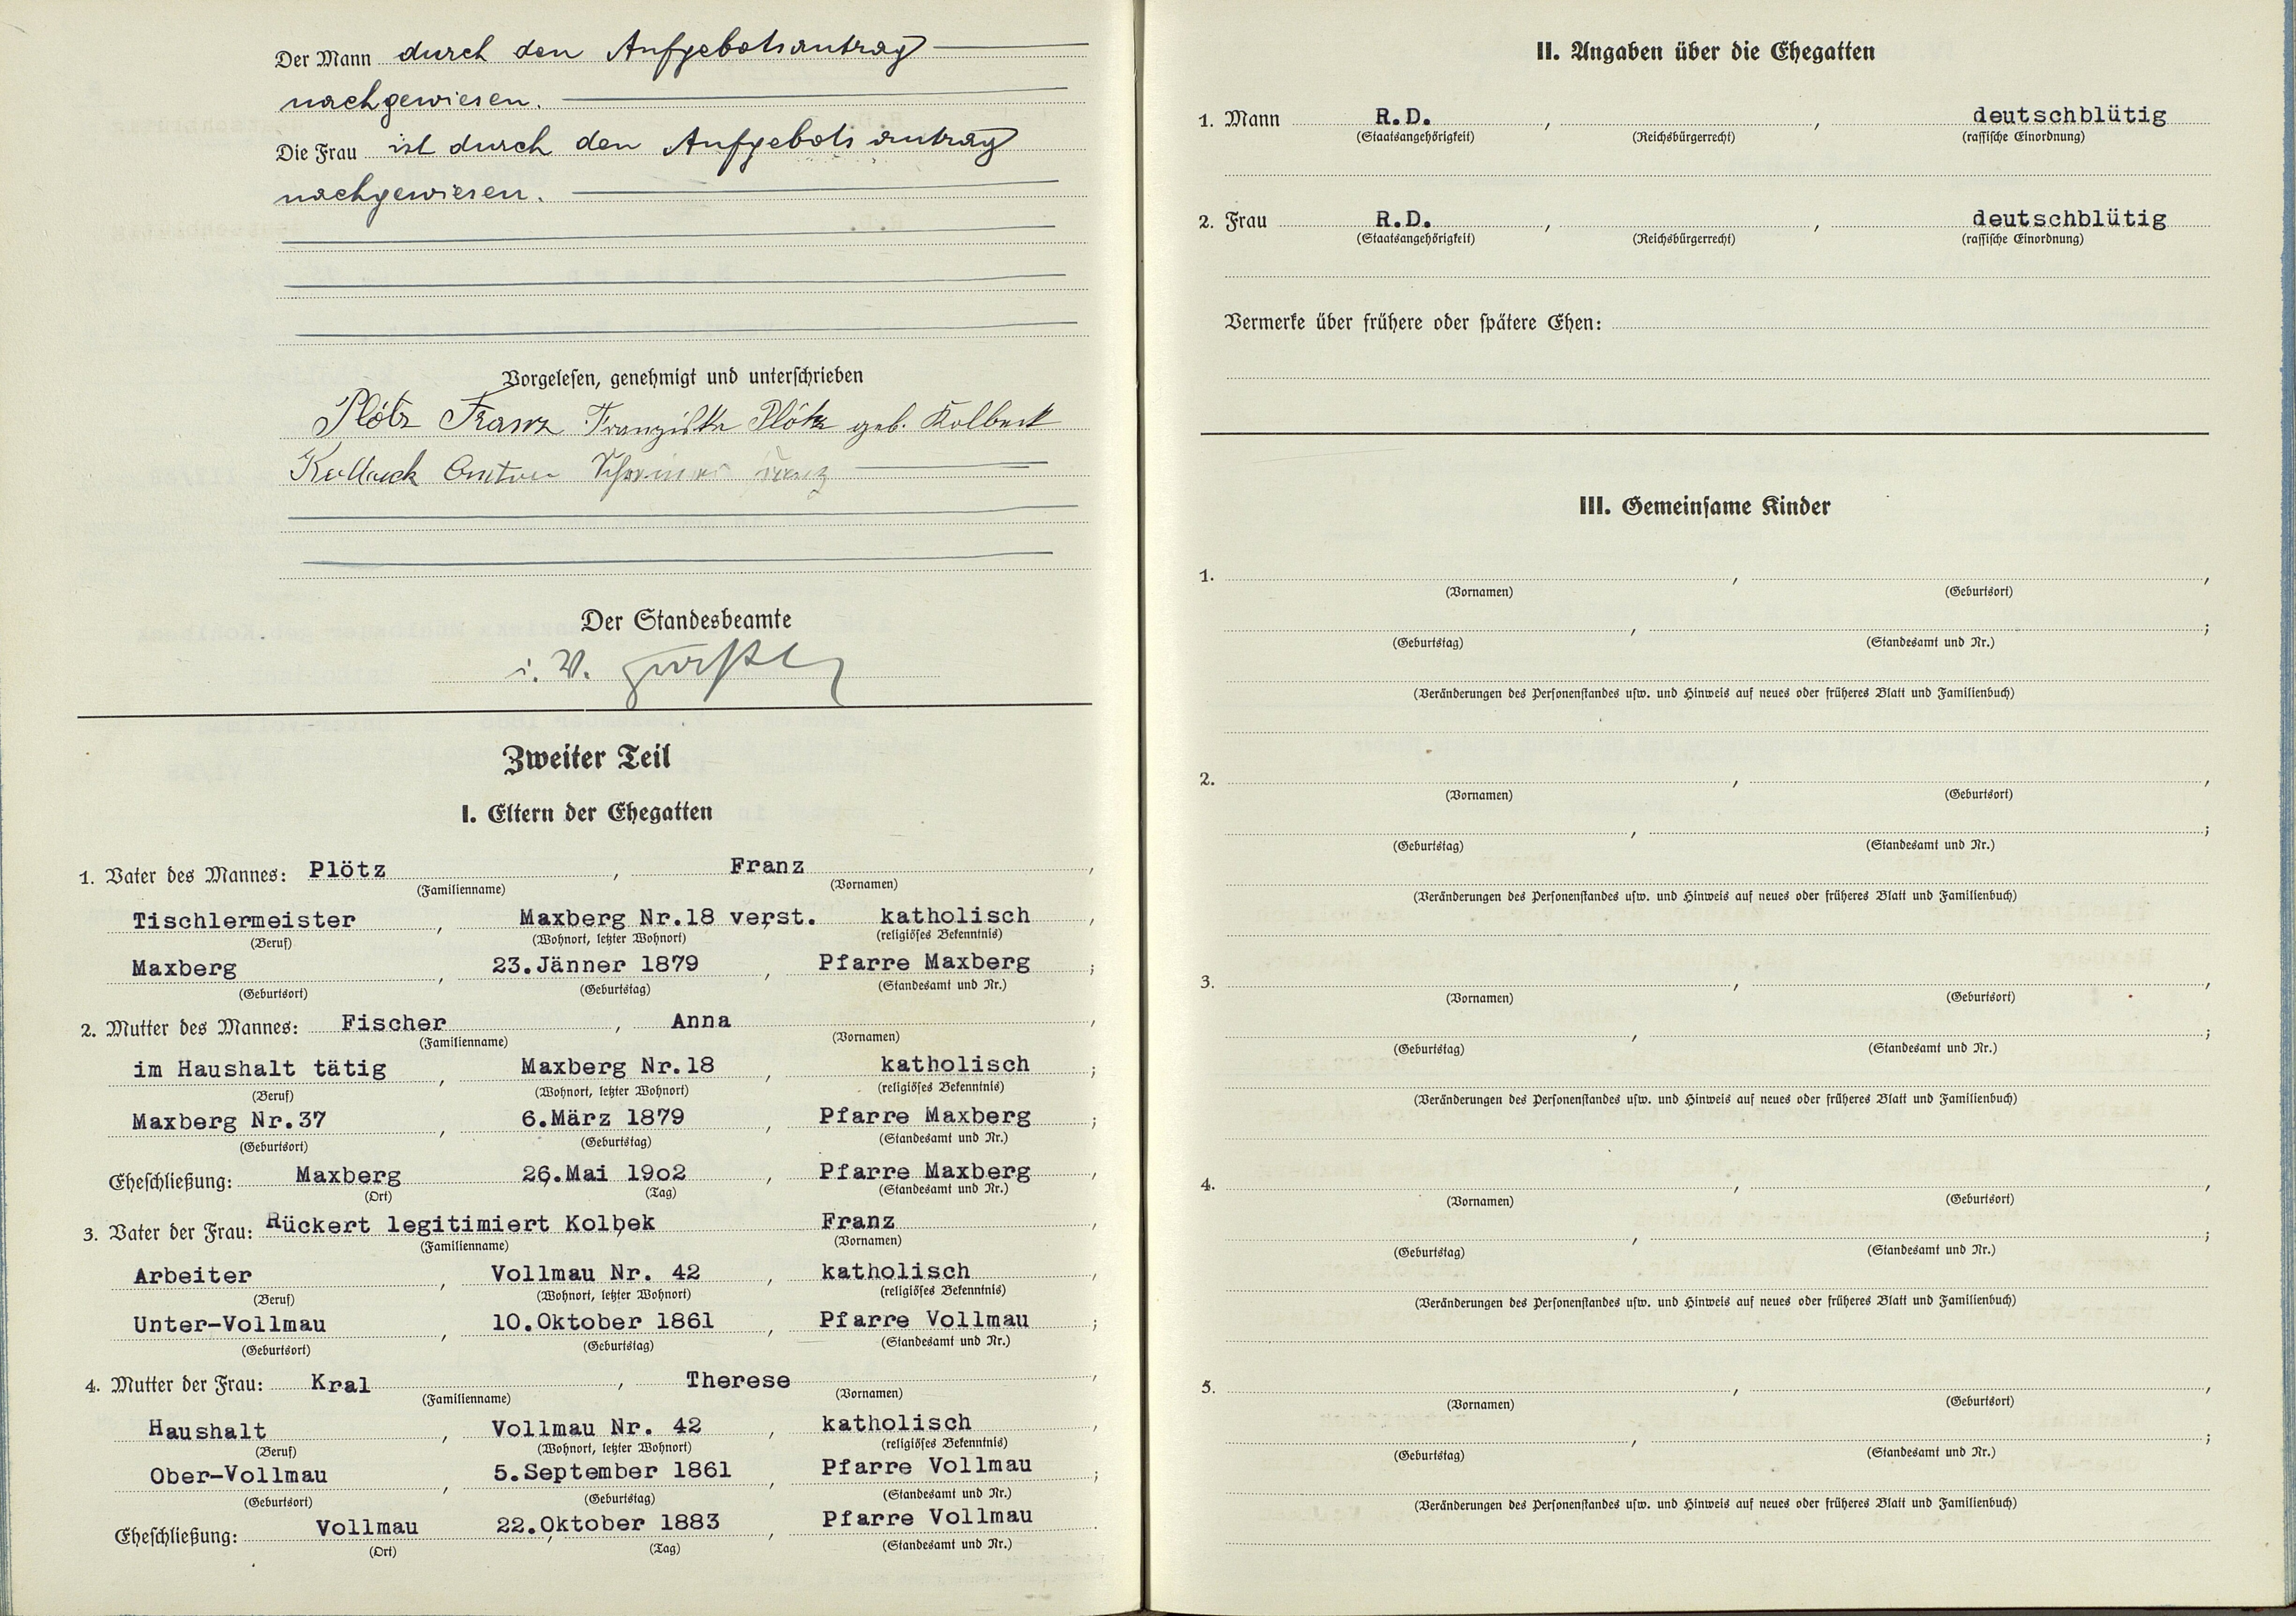 Der Mann durch den Aufgebotsantrag
nachgewiesen.
Die Frau ist durch den Aufgebotsantrag
nachgewiesen.
Vorgelesen, genehmigt und unterschrieben
Plötz Franz Franziska Plötz geb. Kolbeck
Anton
Der Standesbeamte
i. V.
Zweiter Teil
I. Eltern der Ehegatten
1. Vater des Mannes: Plötz , Franz ,
(Familienname) (Vornamen)
Tischlermeister , Maxberg Nr.18 verst. katholisch ,
(Beruf) (Wohnort, letzter Wohnort) (religiöses Bekenntnis)
Maxberg , 23.Jänner 1879 , Pfarre Maxberg ;
(Geburtsort) (Geburtstag) (Standesamt und Nr.)
2. Mutter des Mannes: Fischer , Anna ,
(Familienname) (Vornamen)
im Haushalt tätig , Maxberg Nr.18 , katholisch ;
(Beruf) (Wohnort, letzter Wohnort) (religiöses Bekenntnis)
Maxberg Nr.37 , 6.März 1879 , Pfarre Maxberg ;
(Geburtsort) (Geburtstag) (Standesamt und Nr.)
Eheschließung: Maxberg , 26.Mai 19o2 , Pfarre Maxberg ,
(Ort) (Tag) (Standesamt und Nr.)
3. Vater der Frau: Rückert legitimiert Kolbek , Franz ,
(Familienname) (Vornamen)
Arbeiter , Vollmau Nr. 42 , katholisch ,
(Beruf) (Wohnort, letzter Wohnort) (religiöses Bekenntnis)
Unter-Vollmau , 10.Oktober 1861 , Pfarre Vollmau ;
(Geburtsort) (Geburtstag) (Standesamt und Nr.)
4. Mutter der Frau: Kral , Therese ,
(Familienname) (Vornamen)
Haushalt , Vollmau Nr. 42 , katholisch ,
(Beruf) (Wohnort, letzter Wohnort) (religiöses Bekenntnis)
Ober-Vollmau , 5.September 1861 , Pfarre Vollmau ;
(Geburtsort) (Geburtstag) (Standesamt und Nr.)
Eheschließung: Vollmau , 22.Oktober 1883 , Pfarre Vollmau .
(Ort) (Tag) (Standesamt und Nr.)
II. Angaben über die Ehegatten
1. Mann R.D. , , deutschblütig
(Staatsangehörigkeit) (Reichsbürgerrecht) (rassische Einordnung)
2. Frau R.D. , , deutschblütig
(Staatsangehörigkeit) (Reichsbürgerrecht) (rassische Einordnung)
Vermerke über frühere oder spätere Ehen:
III. Gemeinsame Kinder
1. , ,
(Vornamen) (Geburtsort)
, ;
(Geburtstag) (Standesamt und Nr.)
(Veränderungen des Personenstandes usw. und Hinweis auf neues oder früheres Blatt und Familienbuch)
2. , ,
(Vornamen) (Geburtsort)
, ;
(Geburtstag) (Standesamt und Nr.)
(Veränderungen des Personenstandes usw. und Hinweis auf neues oder früheres Blatt und Familienbuch)
3. , ,
(Vornamen) (Geburtsort)
, ;
(Geburtstag) (Standesamt und Nr.)
(Veränderungen des Personenstandes usw. und Hinweis auf neues oder früheres Blatt und Familienbuch)
4. , ,
(Vornamen) (Geburtsort)
, ;
(Geburtstag) (Standesamt und Nr.)
(Veränderungen des Personenstandes usw. und Hinweis auf neues oder früheres Blatt und Familienbuch)
5. , ,
(Vornamen) (Geburtsort)
, ;
(Geburtstag) (Standesamt und Nr.)
(Veränderungen des Personenstandes usw. und Hinweis auf neues oder früheres Blatt und Familienbuch)